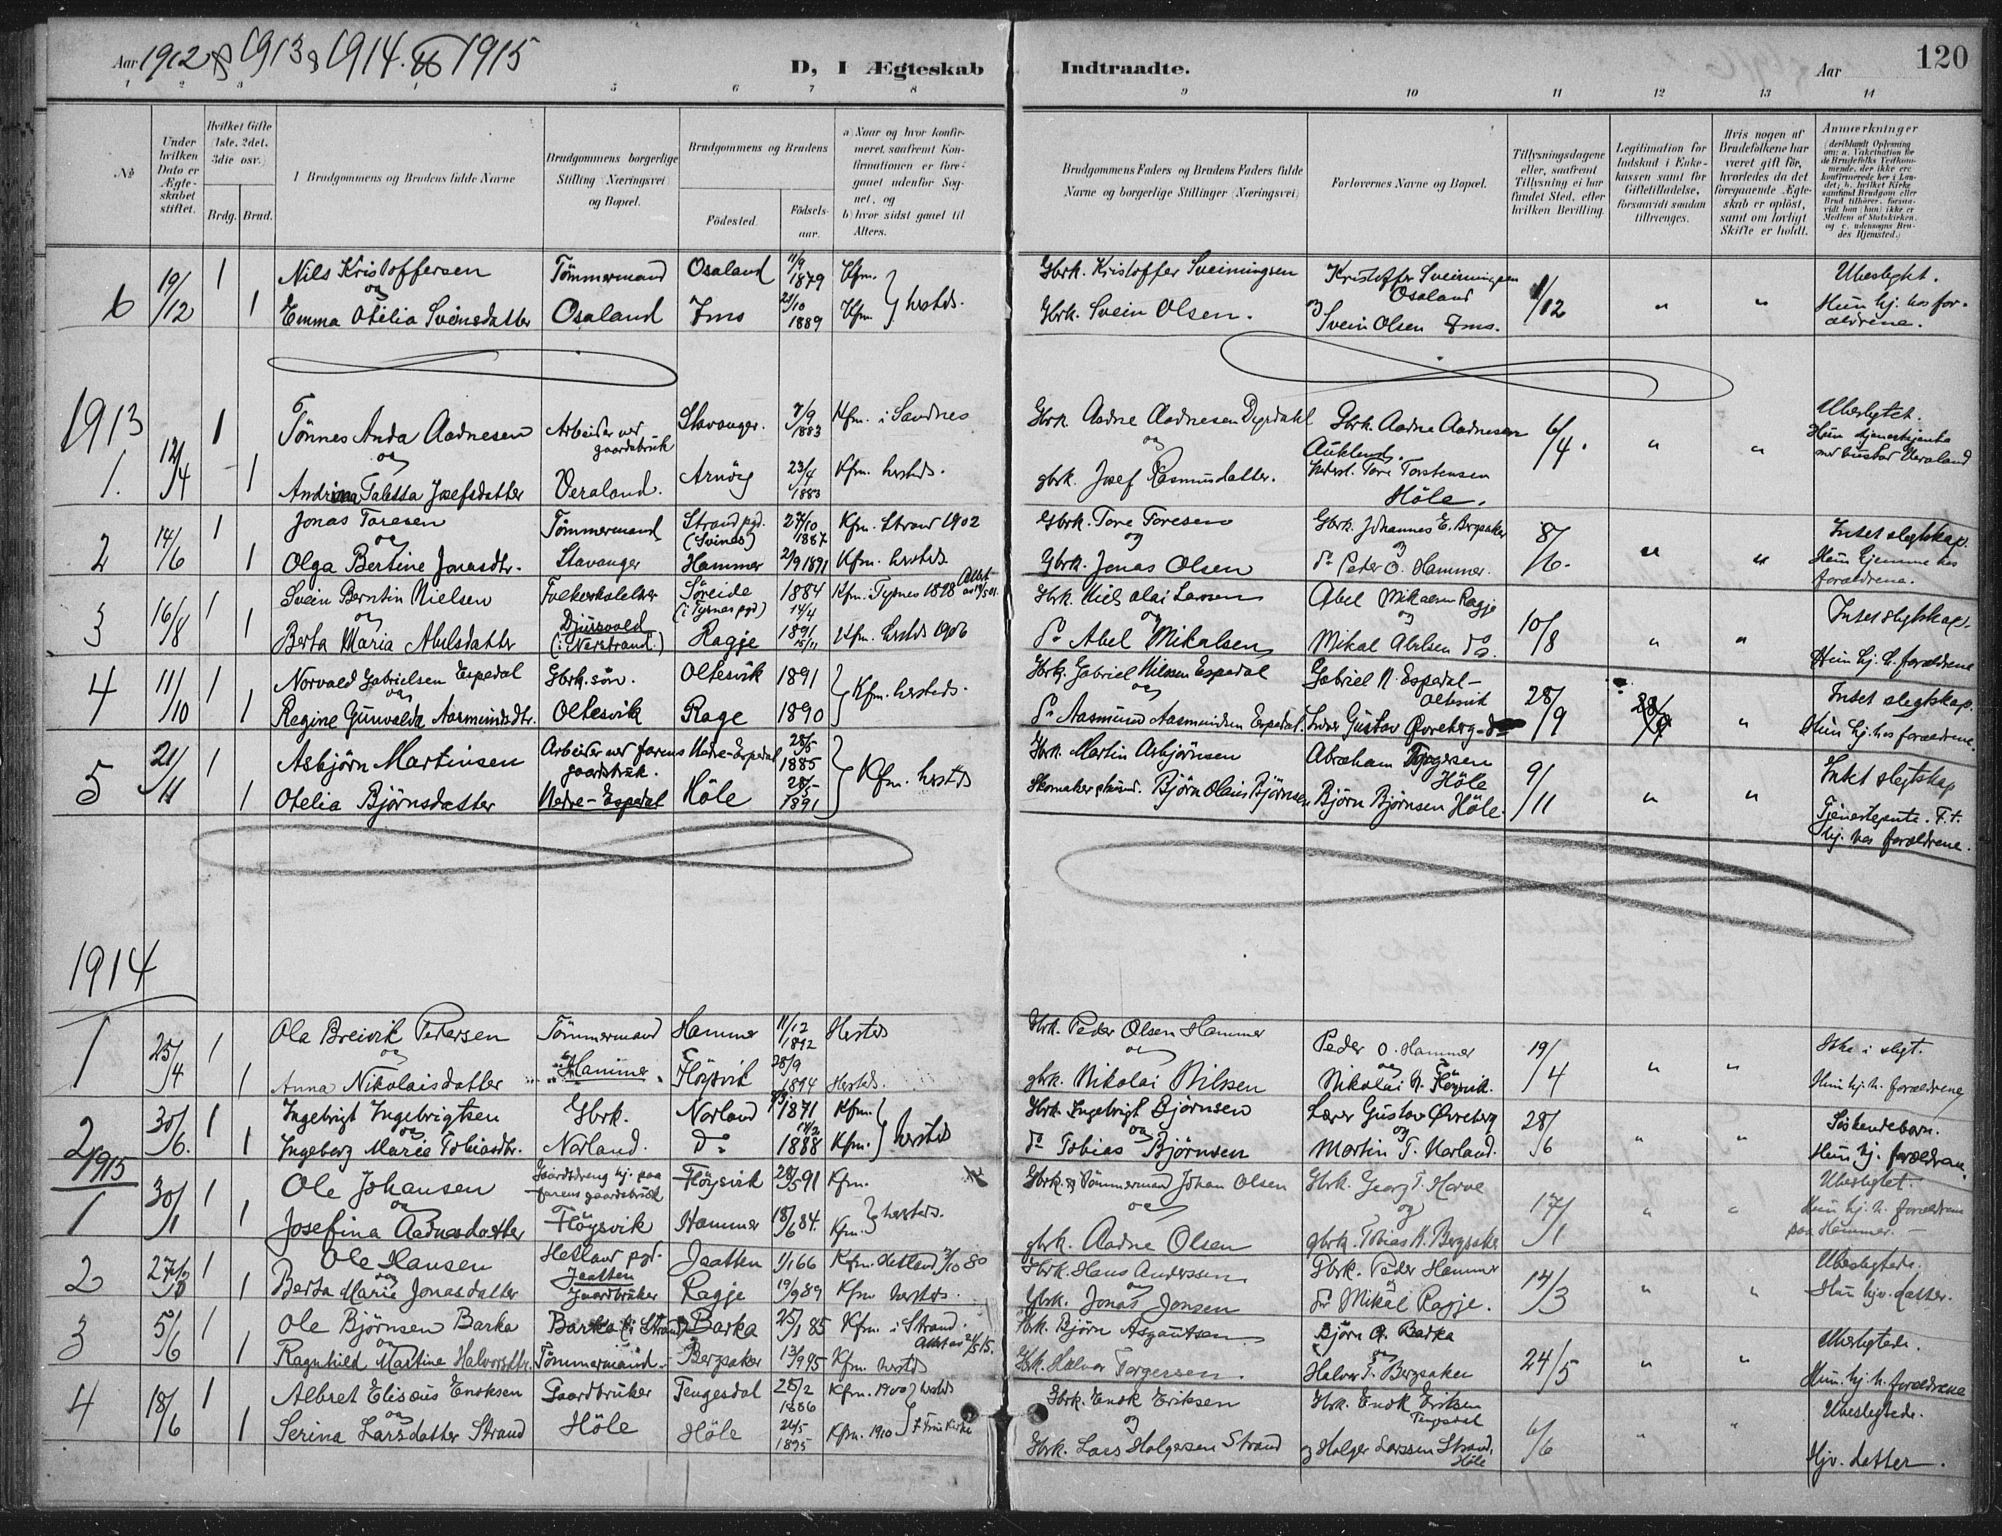 Aar 1912 & 1913 & 1914. & 1915
D, I Ægteskab Indtraadte.
Aar 120
1 2 3 4 5 6 7 8 9 10 11 12 13 14
№
Under hvilken Dato er Ægteskabet stiftet.
Hvilket Gifte (1ste, 2det, 3die osv.)
Brdg. Brud.
1 Brudgommens og Brudens fulde Navne
Brudgommens borgerlige Stilling (Næringsvei) og Bopæl.
Brudgommens og Brudens
Fødested.
Fødselsaar.
a) Naar og hvor konfirmeret, saafremt Konfirmationen er foregaaet udenfor Sognet, og
b) hvor sidst gaaet til Alters.
Brudgommens Faders og Brudens Faders fulde Navne og borgerlige Stillinger (Næringsvei)
Forlovernes Navne og Bopæl.
Tillysningsdagene eller, saafremt Tillysning ei har fundet Sted, efter hvilken Bevilling.
Legitimation for Indskud i Enkekassen samt for Giftetilladelse, forsaavidt saadan tiltrænges.
Hvis nogen af Brudefolkene har været gift før, hvorledes da det foregaaende Ægteskab er opløst, samt om lovligt Skifte er holdt.
Anmerkninger
6 19/12 1 Nils Kristoffersen Tømmermand Osaland 11/9 1879 Kfm. Gbrk. Kristoffer Sveinungsen Kristoffer Sveinungsen Osaland 1/12 " " Ubeslgtet.
og
1 Emma Otilia Sveinsdatter Osaland Ims 23/10 1889 Kfm. herstds. Gbrk. Svein Olsen. og Svein Olsen Ims. Hun hj. hos forældrene.
1913
1. 12/4 1 Tönnes Anda Aadnesen Arbeider ved gaardsbruk Stavanger. 7/9 1883 Kfm. i Sandnes Gbrk. Aadne Aadnesen Gbrk. Aadne Aadnesen Auklend. 6/4. " " Ubeslgtet.
og
1 Taletta Josefsdatter Veraland. 23/4 1883 Kfm. herstds. gbrk. Josef Rasmusdatter. Tore Torstensen Höle.
2 14/6 1 Jonas Toresen Tømmermand Strand pgd. (Svines) 27/10 1887 Kfm. Strand 1902 Gbrk. Tore Toresen Gbrk. Johannes E. Bergsaker 8/6. " " Intet slegtskap.
og
1 Olga Bertine Jonasdtr. Stavanger Hammer 2/9 1891 Kfm. herstds Gbrk. Jonas Olsen do Peter O. Hammer. Hun hjemme hos forældrene.
3 16/8 1 Svein Berntin Nielsen Søreide (i Tysnes pgd) 1884 14/4 Kfm. Tysnes 1898 Gbrk. Nielsolai Larsen Abel Mikalsen Ragje 10/8 " " Intet slegtskap.
og
1 Berta Maria Abelsdatter (i Nerstrand.) Ragje 1891 Kfm. herstds 1906 do Abel Mikalsen og Mikal Abelsen do. Hun hj. h. forældrene
4 11/10 1 Norvald Gabrielsen Espedal Gbrk. søn. Oltesvik 1891 Gbrk. Gabriel Nilssen Espedal Gabriel N. Espedal – Oltesvik 28/9 " Intet slegtskap.
og
1 Regine Gunvalda Aasmundsdtr. Oltesvik Rage 1890 Kfm. herstds. do Aasmund Aasmundsen Espedal. Gustav Øvreberg Hun hj. hos forældrene.
5 21/11 1 Asbjørn Martinsen Arbeider ved farens gaardsbruk. Nedre-Espedal 28/5 1885 Gbrk. Martin Asbjørnsen Abraham Torgersen Höle 9/11 " " Intet slegtskap
1 Otelia Björnsdatter Nedre-Espedal Höle 28/5 1891 Kfm. herstds Björn Olaus Björnsen Björn Björnsen Höle. Tjenestepike. F.t. hj. hos forældrene.
1914
1 25/4 1 Ola Breivik Petersen Tömmermand Hammer 11/12 1892 Herstds Gbrk. Peder Olsen Hammer Peder O. Hammer 19/4 " " Ikke i slegt.
og
1 Anna Nikolaisdatter Hammer Flöysvik 28/9 1894 Herstds. gbrk. Nikolai Nilssen og Nikolai N. Flöysvik. Hun hj. h. forældrene
2 30/6. 1 Ingebrigt Ingebrigtsen Gbrk. Norland 1871 Kfm. Gbrk. Ingebrigt Björnsen Lærer Gustav Øvreberg 28/6 " " Söskendebarn.
og
1 Ingeborg Marie Tobiasdtr. Norland. Do 1888 Kfm. herstds do Tobias Björnsen og Martin T. Norland. Hun hj. forældran.
1915
1 30/1 1 Ole Johansen Gaardsdreng hj. paa farens gaardsbruk Flöysvik 28/5 91 Kfm. Gbrk. og Tömmermand Johan Olsen Gbrk. Georg T. Horve 17/1 " " Ubeslgtet.
og
1 Josefina Aadnesdatter Flöysvik Hammer 18/6 84. Kfm. herstds. gbrk. Aadne Olsen gbrk. Tobias K. Bergsaker Hun hj. h. forældrene paa Hammer.
2 1 Ole Hansen Hetland pgd. Jaatten Jaatten 1/1 66 Kfm. Hetland 3/10 80 Gbrk. Hans Anderssen Gbrk. Peder Hammer 14/3 " " Ubeslgtede.
og
1 Berta Marie Jonasdatter Gaardbruker Ragje 19/9 89 Kfm. herstds. Gbrk. Jonas Jonsen do Mikal Ragje. Hun hjv. datter.
3 5/6 1 Ole Björnsen Barka Barka (i Strand) Barka 25/1 85 Kfm. i Strand. Gbrk. Björn Asgautsen Björn A. Barka 24/5 " " Ubeslgtede.
og
1 Ragnhild Martine Halvorsdtr. Tömmermand. Bergsaker 13/9 95 Kfm. herstds Gbrk. Halvor Torgersen. Halvor T. Bergsaker Hun. hj. h. forældrene
4 18/6 1 Albret Eliseus Enoksen Gaardbruker Tengesdal 25/2 1886 Kfm. 1900 herstds Gbrk. Enok Eriksen Gbrk. Enok Eriksen Tengesdal 6/6 " " Ubeslgtede.
og
1 Serina Larsdatter Strand Höle Höle 26/5 1895 Kfm. 1910 Gbrk. Lars Holgersen Strand og Holger Larssen Strand, Höle Hjv. datter.